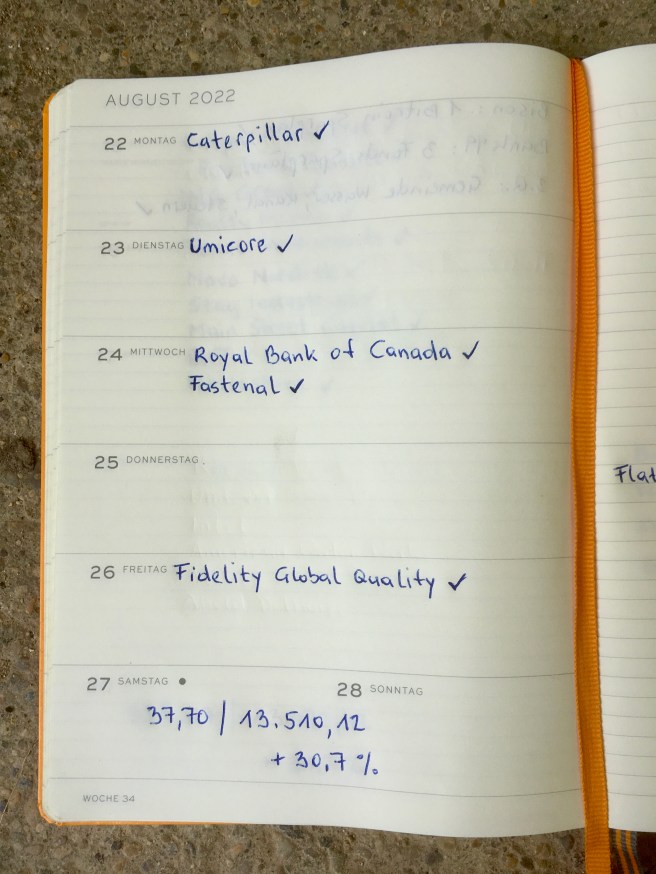 AUGUST 2022
22 MONTAG Caterpillar ✓
23 DIENSTAG Umicore ✓
24 MITTWOCH Royal Bank of Canada ✓
Fastenal ✓
25 DONNERSTAG
26 FREITAG Fidelity Global Quality ✓
27 SAMSTAG ●
28 SONNTAG
37,70 / 13.510,12
+ 30,7 %
WOCHE 34
Flat